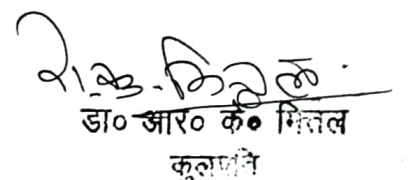 रा. कु. मित्तल
डा० आर० के० मित्तल
कुलपति